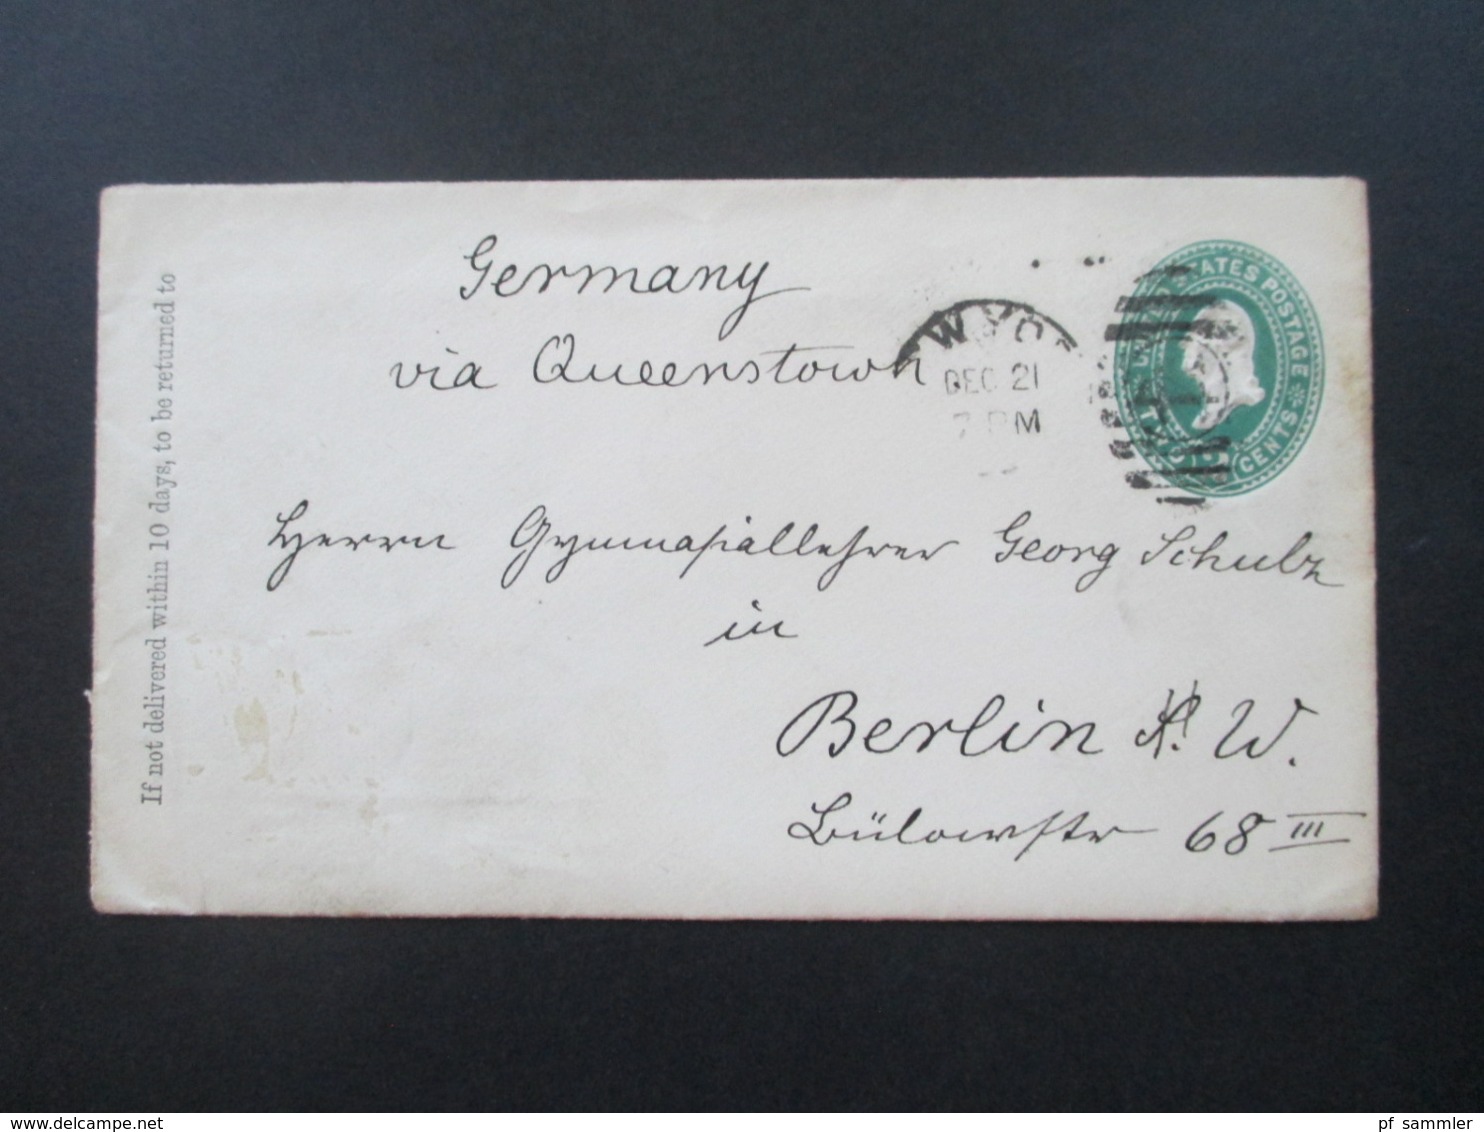 If not delivered within 10 days, to be returned to
Germany
via Queenstown
DEC 21
STATES POSTAGE
CENTS
Herrn Gymnasiallehrer Georg Schulz
in
Berlin W.
Bülowstr 68 III
© www.delcampe.net
pf_sammler